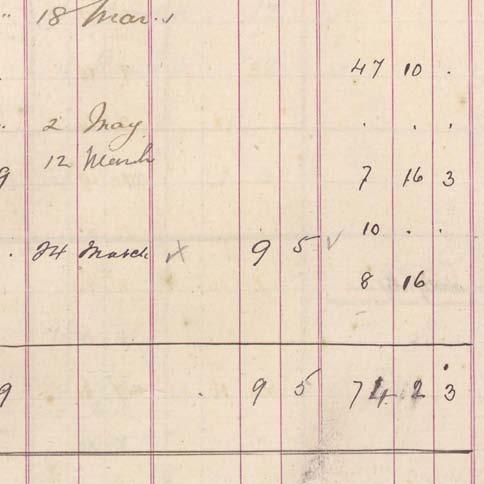 " 18 Mar.
47 10 .
. 2 May . . .
12 March
9 7 16 3
10 . .
. 24 March x 9 5 ✓
8 16
9 . 9 5 74 2 3